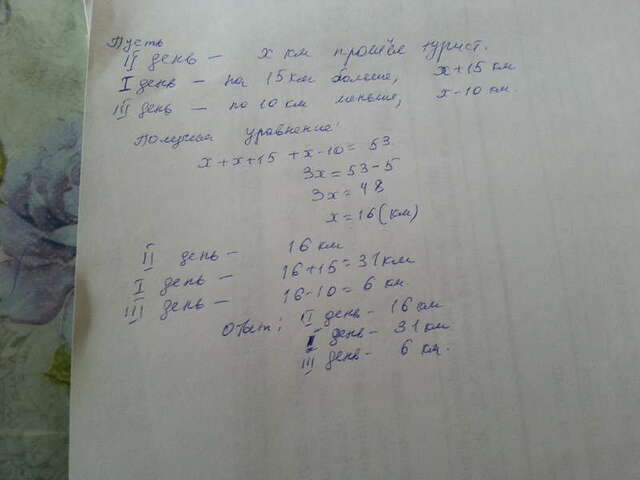 Пусть
II день - x км прошёл турист.
I день - на 15 км больше, x+15 км
III день - на 10 км меньше, x-10 км.
Получим уравнение:
x+x+15+x-10=53.
3x=53-5
3x=48
x=16(км)
II день - 16 км
I день - 16+15=31 км
III день - 16-10=6 км
Ответ: II день - 16 км
I день - 31 км
III день - 6 км.